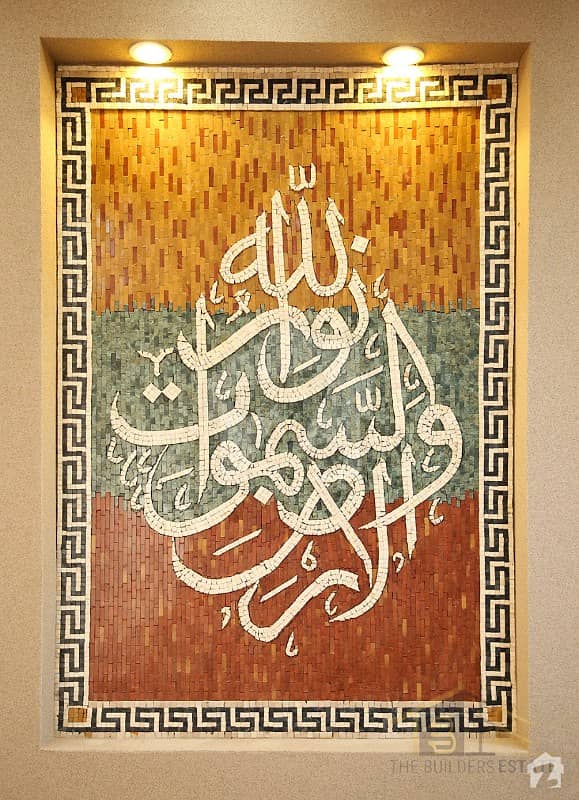 الله نور السموات والأرض
THE BUILDERS ESTATE